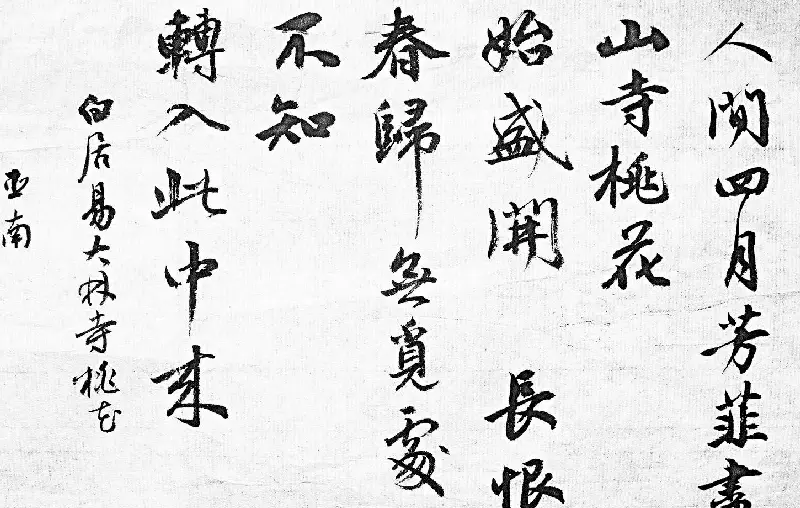 人間四月芳菲盡
山寺桃花
始盛開 長恨
春歸無覓處
不知
轉入此中來
白居易大林寺桃花
亚南